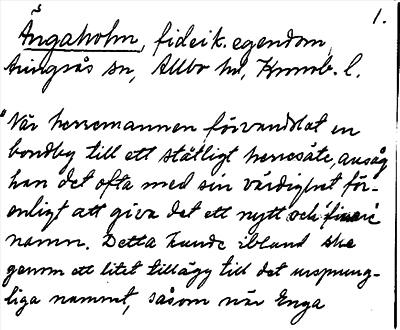 1.
Ängaholm, fideik. egendom,
Aringsås sn, Allbo hd, Kronob. l.
"När herremannen förvandlat en
bondby till ett ståtligt herresäte, ansåg
han det ofta med sin värdighet för-
enligt att giva det ett nytt och finare
namn. Detta kunde ibland ske
genom ett litet tillägg till det ursprung-
liga namnet, såsom när Enga